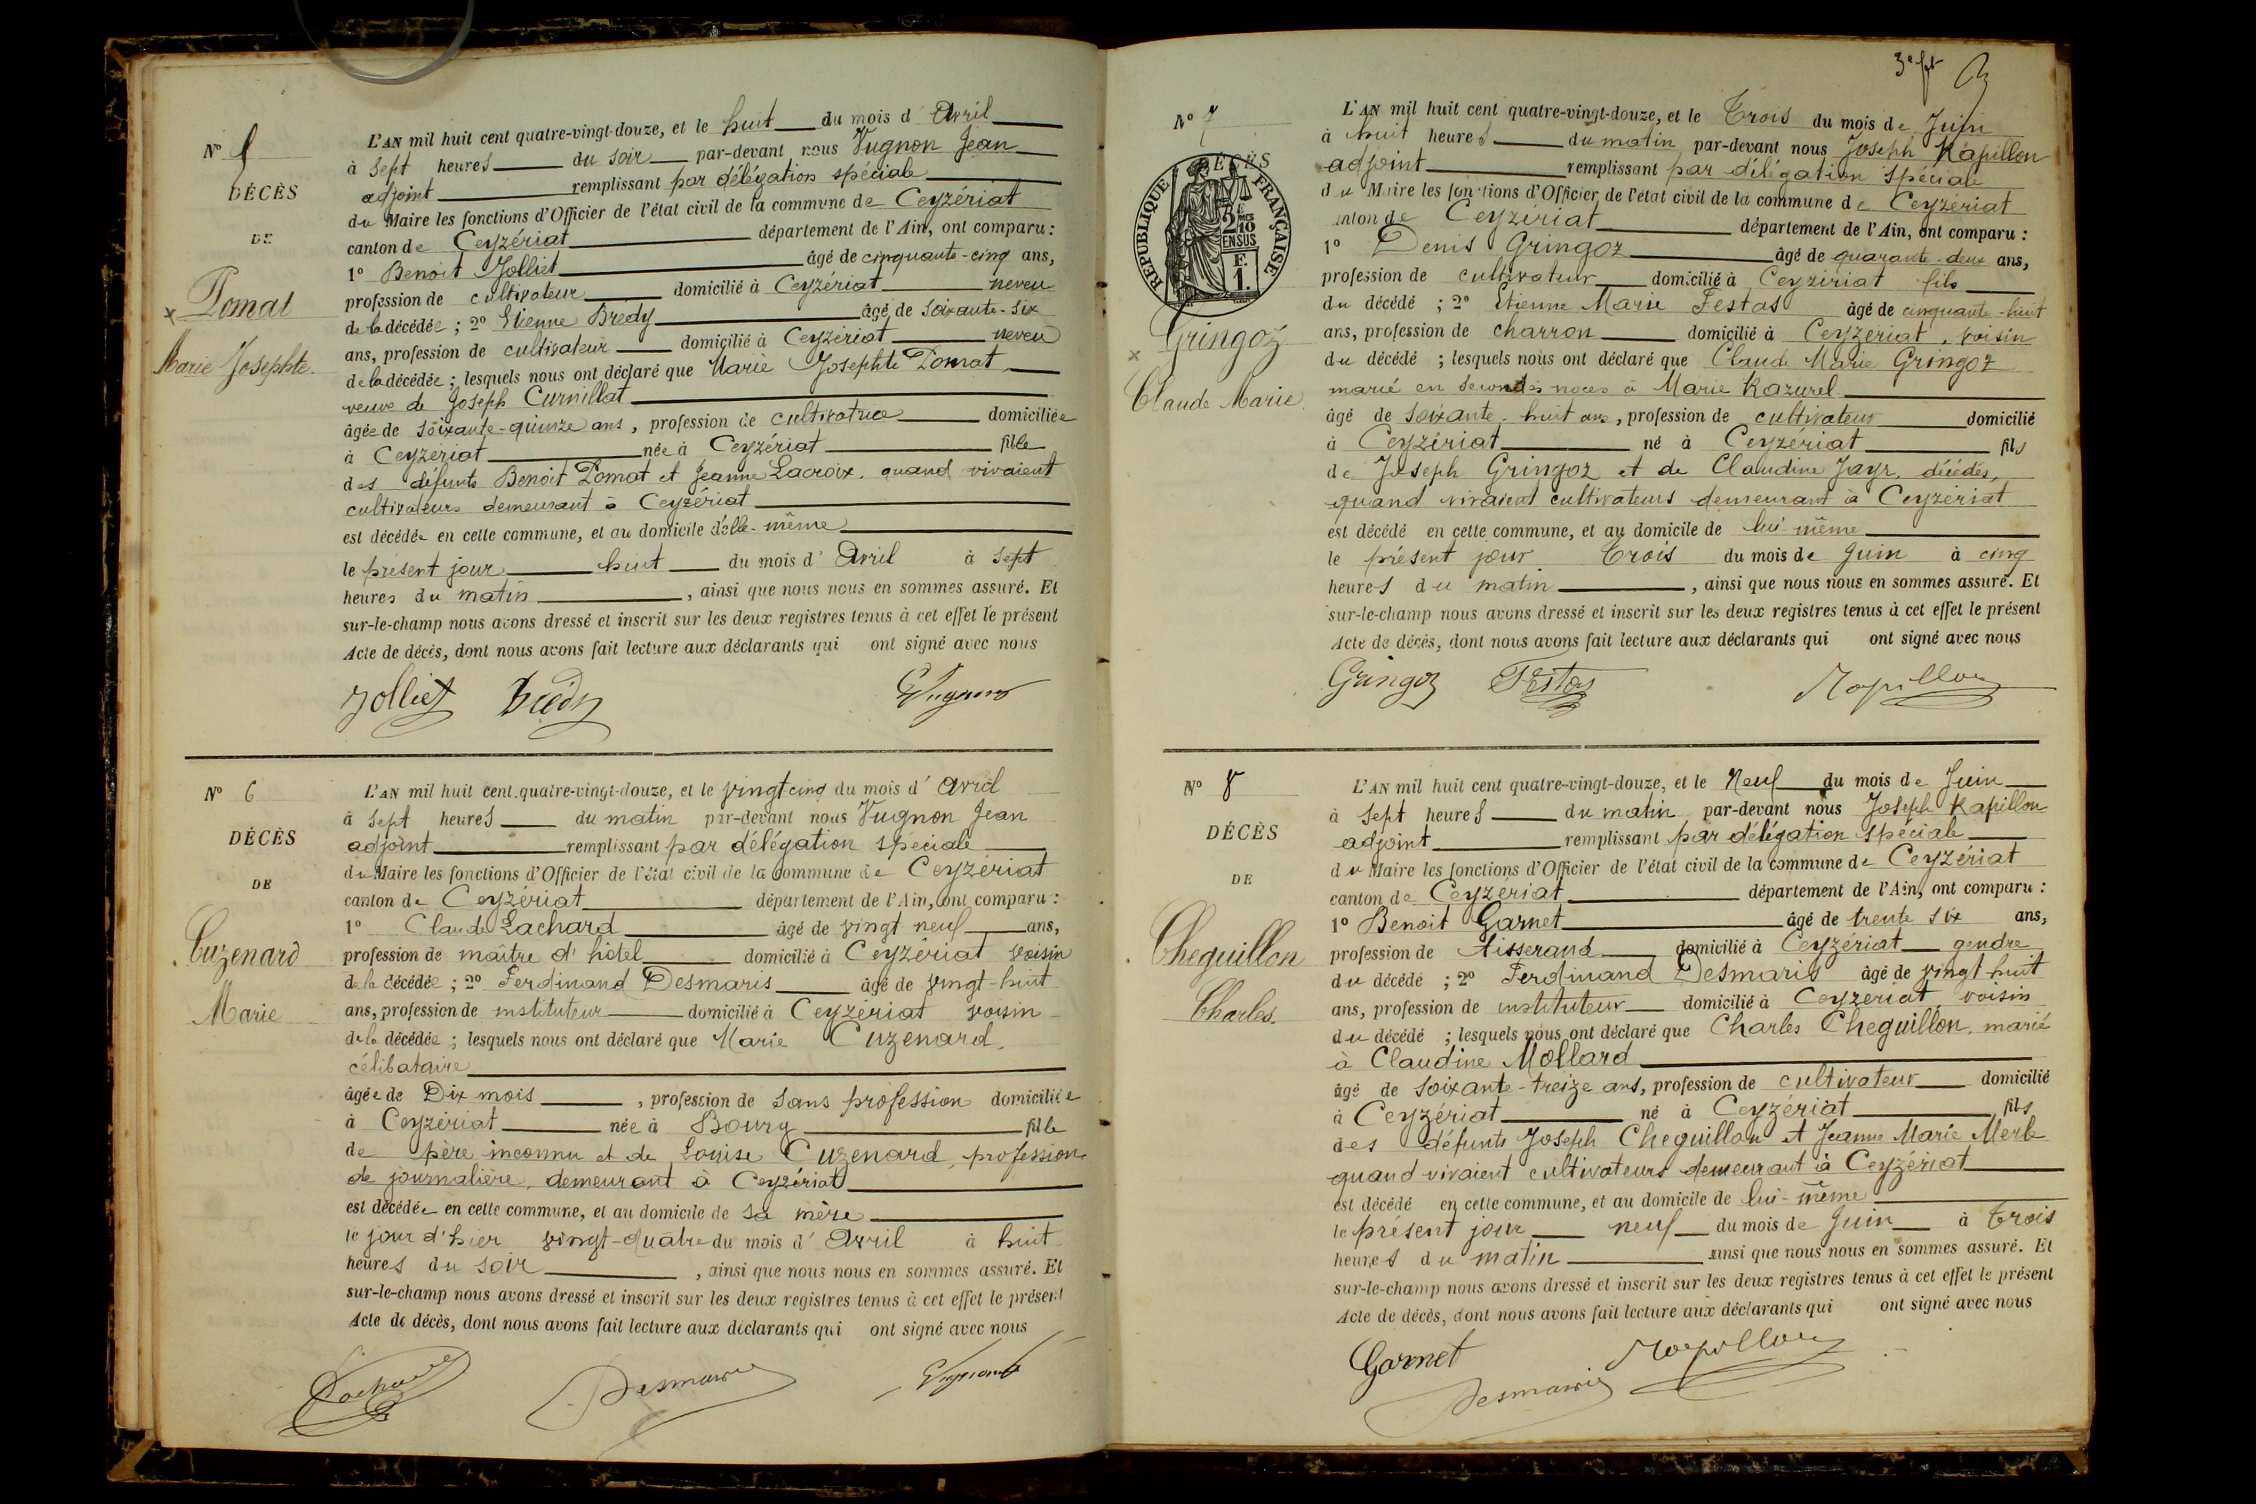 N° 5
DÉCÈS
DE
Pomat
Marie Josephte.
L'AN mil huit cent quatre-vingt-douze, et le huit du mois d'Avril
à sept heures du soir par-devant nous Vugnon Jean
adjoint remplissant par délégation spéciale
du Maire les fonctions d'Officier de l'état civil de la commune de Ceyzériat
canton de Ceyzériat département de l'Ain, ont comparu :
1° Benoit Jolliet âgé de cinquante-cinq ans,
profession de cultivateur domicilié à Ceyzériat neveu
de la décédée ; 2° Etienne Bredy âgé de soixante-six
ans, profession de cultivateur domicilié à Ceyzériat neveu
de la décédée ; lesquels nous ont déclaré que Marie Josephte Pomat
veuve de Joseph Curnillat
âgée de soixante-quinze ans, profession de cultivatrice domiciliée
à Ceyzériat née à Ceyzériat fille
des défunts Benoit Pomat et Jeanne Lacroix. quand vivaient
cultivateurs demeurant à Ceyzériat
est décédée en cette commune, et au domicile d'elle-même
le présent jour huit du mois d'Avril à sept
heures du matin, ainsi que nous nous en sommes assuré. Et
sur-le-champ nous avons dressé et inscrit sur les deux registres tenus à cet effet le présent
Acte de décès, dont nous avons fait lecture aux déclarants qui ont signé avec nous
Jolliet Bredy Vugnon
N° 6
DÉCÈS
DE
Cuzenard
Marie
L'AN mil huit cent quatre-vingt-douze, et le vingt cinq du mois d'avril
à sept heures du matin par-devant nous Vugnon Jean
adjoint remplissant par délégation spéciale
du Maire les fonctions d'Officier de l'état civil de la commune de Ceyzériat
canton de Ceyzériat département de l'Ain, ont comparu :
1° Claude Lachard âgé de vingt neuf ans,
profession de maître d'hôtel domicilié à Ceyzériat voisin
de la décédée ; 2° Ferdinand Desmaris âgé de vingt-huit
ans, profession de instituteur domicilié à Ceyzériat voisin
de la décédée ; lesquels nous ont déclaré que Marie Cuzenard,
célibataire
âgée de Dix mois, profession de sans profession domiciliée
à Ceyzériat née à Bourg fille
de père inconnu et de Louise Cuzenard, profession
de journalière, demeurant à Ceyzériat
est décédée en cette commune, et au domicile de sa mère
le jour d'hier vingt-quatre du mois d'avril à huit
heures du soir, ainsi que nous nous en sommes assuré. Et
sur-le-champ nous avons dressé et inscrit sur les deux registres tenus à cet effet le présent
Acte de décès, dont nous avons fait lecture aux déclarants qui ont signé avec nous
Lachard Desmaris Vugnon
3e
N° 7
DÉCÈS
RÉPUBLIQUE FRANÇAISE
2/10 EN SUS
F. 1.
Gringoz
Claude Marie
L'AN mil huit cent quatre-vingt-douze, et le Trois du mois de Juin
à huit heures du matin par-devant nous Joseph Rapillon
adjoint remplissant par délégation spéciale
du Maire les fonctions d'Officier de l'état civil de la commune de Ceyzériat
canton de Ceyzériat département de l'Ain, ont comparu :
1° Denis Gringoz âgé de quarante-deux ans,
profession de cultivateur domicilié à Ceyzériat fils
du décédé ; 2° Etienne Marie Festas âgé de cinquante-huit
ans, profession de charron domicilié à Ceyzériat, voisin
du décédé ; lesquels nous ont déclaré que Claude Marie Gringoz
marié en secondes noces à Marie Razurel
âgé de soixante-huit ans, profession de cultivateur domicilié
à Ceyzériat né à Ceyzériat fils
de Joseph Gringoz et de Claudine Jayr, décédés,
quand vivaient cultivateurs demeurant à Ceyzériat
est décédé en cette commune, et au domicile de lui-même
le présent jour Trois du mois de Juin à cinq
heures du matin, ainsi que nous nous en sommes assuré. Et
sur-le-champ nous avons dressé et inscrit sur les deux registres tenus à cet effet le présent
Acte de décès, dont nous avons fait lecture aux déclarants qui ont signé avec nous
Gringoz Festas Rapillon
N° 8
DÉCÈS
DE
Cheguillon
Charles.
L'AN mil huit cent quatre-vingt-douze, et le Neuf du mois de Juin
à sept heures du matin par-devant nous Joseph Rapillon
adjoint remplissant par délégation spéciale
du Maire les fonctions d'Officier de l'état civil de la commune de Ceyzériat
canton de Ceyzériat département de l'Ain, ont comparu :
1° Benoit Garnet âgé de trente six ans,
profession de tisserand domicilié à Ceyzériat gendre
du décédé ; 2° Ferdinand Desmaris âgé de vingt huit
ans, profession de instituteur domicilié à Ceyzeriat, voisin
du décédé ; lesquels nous ont déclaré que Charles Cheguillon, marié
à Claudine Mollard
âgé de soixante-treize ans, profession de cultivateur domicilié
à Ceyzériat né à Ceyzériat fils
des défunts Joseph Cheguillon et Jeanne Marie Merle
quand vivaient cultivateurs demeurant à Ceyzériat
est décédé en cette commune, et au domicile de lui-même
le présent jour neuf du mois de Juin à Trois
heures du matin ainsi que nous nous en sommes assuré. Et
sur-le-champ nous avons dressé et inscrit sur les deux registres tenus à cet effet le présent
Acte de décès, dont nous avons fait lecture aux déclarants qui ont signé avec nous
Garnet Desmaris Rapillon